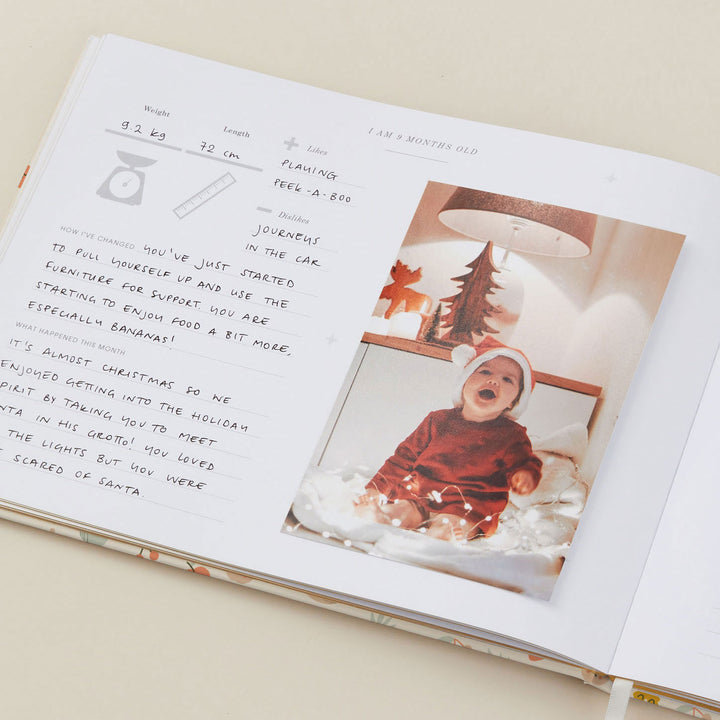 I AM 9 MONTHS OLD
Weight
9.2 kg
Length
72 cm
Likes
PLAYING
PEEK-A-BOO
Dislikes
JOURNEYS
IN THE CAR
HOW I'VE CHANGED YOU'VE JUST STARTED
TO PULL YOURSELF UP AND USE THE
FURNITURE FOR SUPPORT. YOU ARE
STARTING TO ENJOY FOOD A BIT MORE,
ESPECIALLY BANANAS!
WHAT HAPPENED THIS MONTH
IT'S ALMOST CHRISTMAS SO WE
ENJOYED GETTING INTO THE HOLIDAY
SPIRIT BY TAKING YOU TO MEET
SANTA IN HIS GROTTO! YOU LOVED
THE LIGHTS BUT YOU WERE
SCARED OF SANTA.